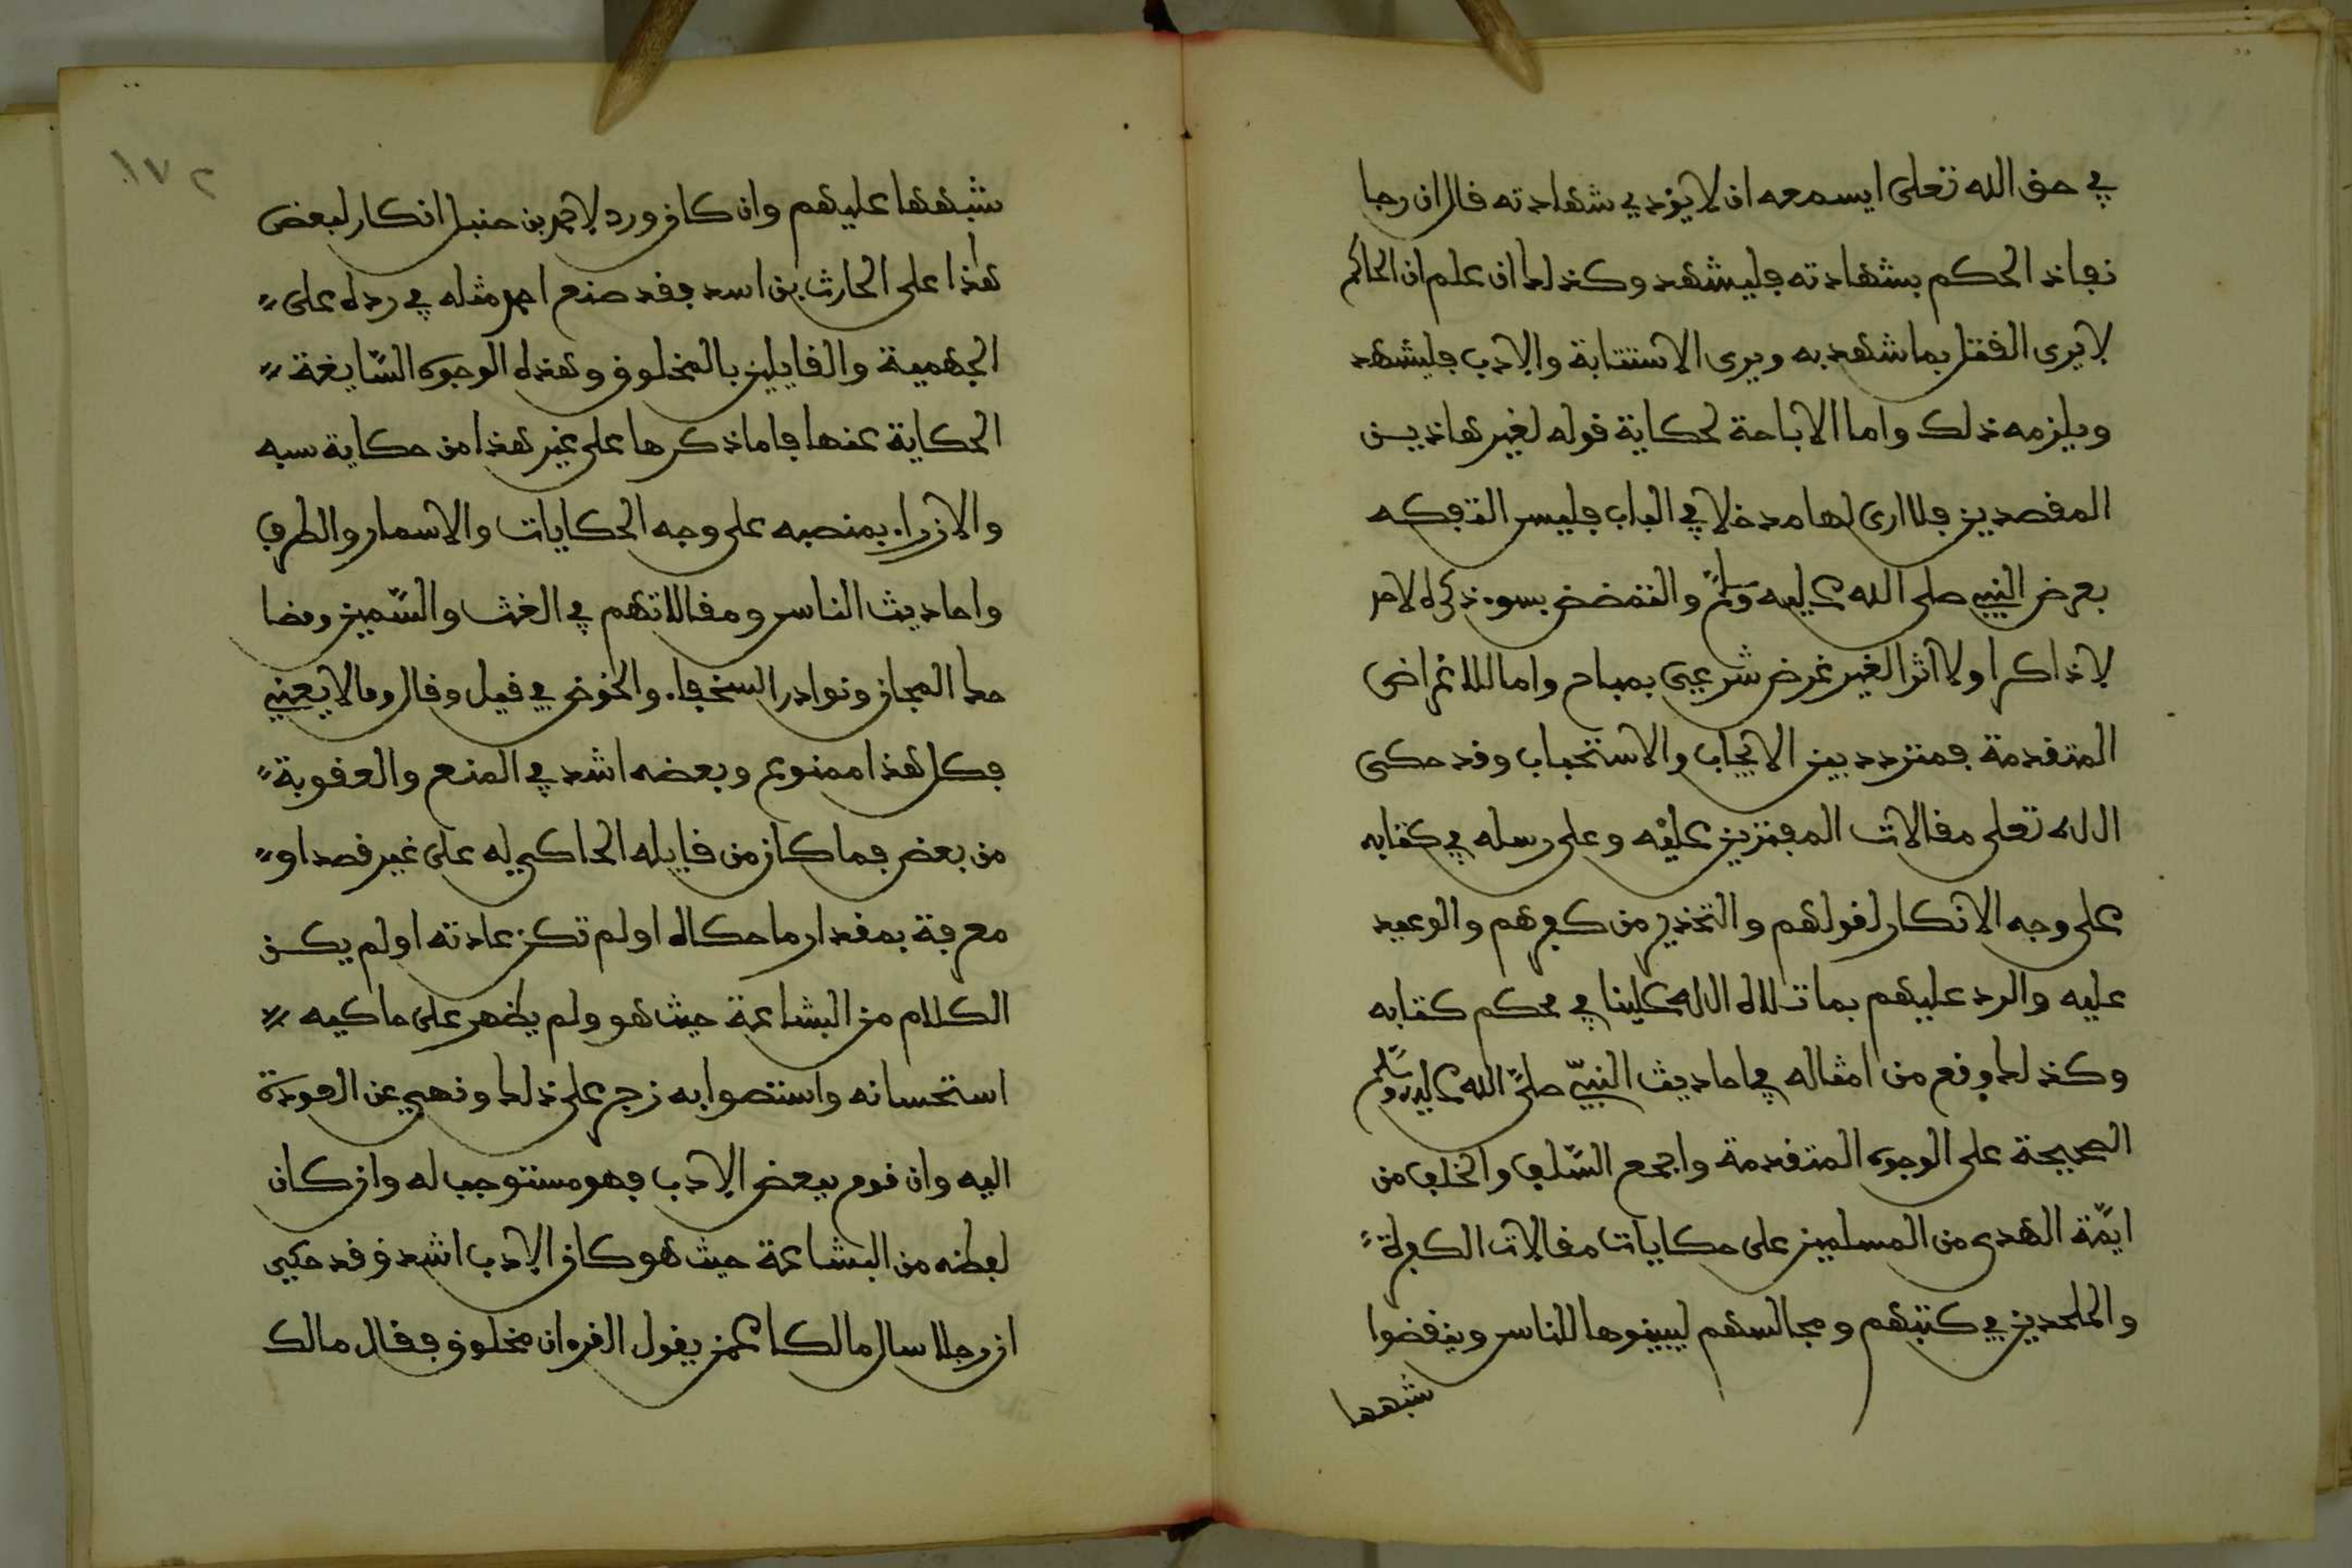 في حق الله تعلى ايسمعه ان لا يؤدي شهادته قال ان رجا
نفاذ الحكم بشهادته فليشهد وكذلك ان علم ان الحاكم
لا يرى القتل بما شهد به ويرى الاستتابة والادب فليشهد
ويلزمه ذلك واما الاباحة لحكاية قوله لغير هاذيـن
المقصدين فلا ارى لها مدخلا في الباب فليس التفكه
بعرض النبي صلى الله عليه وسلم والتمضمض بسوء ذكره لاحد
لا ذاكرا ولا اثرا لغير غرض شرعيى بمباح واما للاغراض
المتقدمة فمتردد بين الايجاب والاستحباب وقد حكى
الله تعلى مقالات المفترين عليه وعلى رسله في كتابه
على وجه الانكار لقولهم والتحذير من كفرهم والوعيد
عليه والرد عليهم بما تلاه الله علينا في محكم كتابه
وكذلك وقع من امثاله في احاديث النبيّ صلى الله عليه وسلم
الصحيحة على الوجوه المتقدمة واجمع السّلف والخلف من
ايمّة الهدى من المسلمين على حكايات مقالات الكفرة
والملحدين في كتبهم ومجالسهم ليبينوها للناس وينقضوا
شبهها
١٧٢
شبهها عليهم وان كان ورد لاحمد بن حنبل انكار لبعض
هذا على الحارث بن اسد فقد صنع احمد مثله في رده على
الجهمية والقايلين بالمخلوق وهذه الوجوه السّايغة
الحكاية عنها فاما ذكرها على غير هذا من حكاية سبه
والازراء بمنصبه على وجه الحكايات والاسمار والطرف
واحاديث الناس ومقالاتهم في الغث والسّمين ومضا
حك المجان ونوادر السخفاء والخوض في قيل وقال وما لا يعني
فكل هذا ممنوع وبعضه اشد في المنع والعقوبة
من بعض فما كان من قايله الحاكي له على غير قصد او
معرفة بمقدار ما حكاه او لم تكن عادته او لم يكـن
الكلام من البشاعة حيث هو ولم يظهر على حاكيه
استحسانه واستصوابه زجر على ذلك ونهي عن العودة
اليه وان قوم ببعض الادب فهو مستوجب له وان كان
لفظه من البشاعة حيث هو كان الادب اشد وقد حكي
ان رجلا سال مالكا عمن يقول القرءان مخلوق فقال مالك